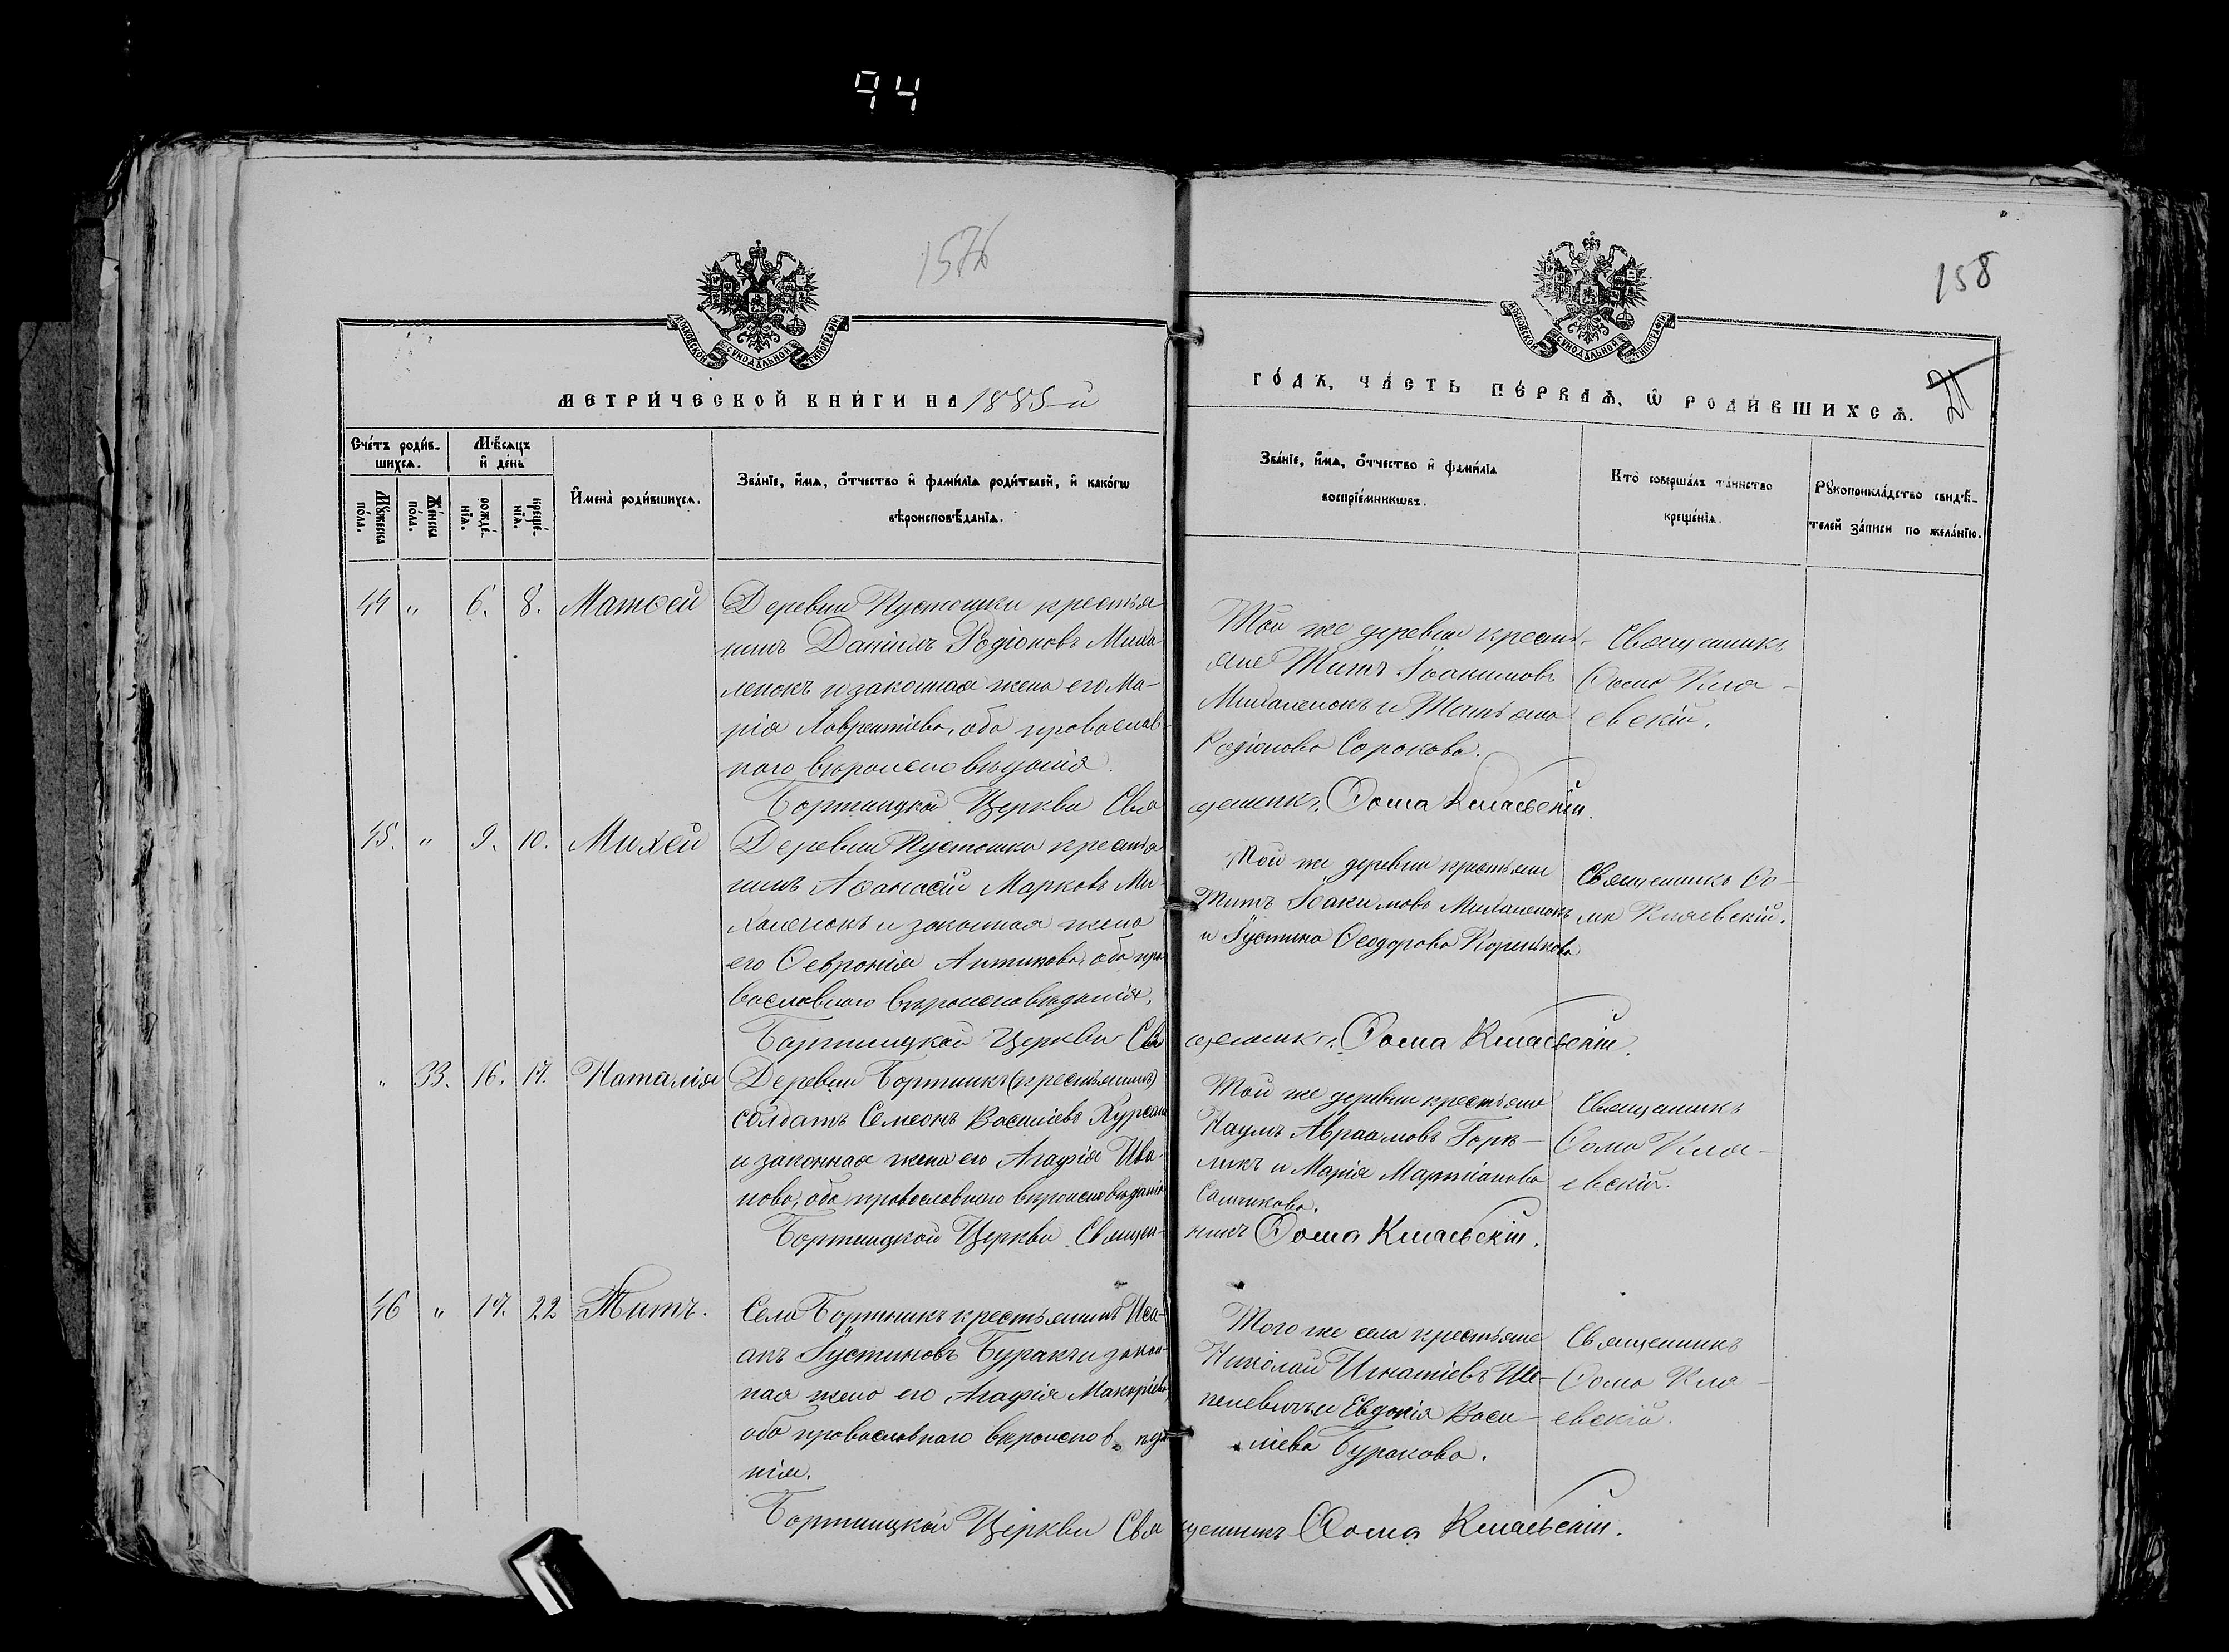 94
157б
158
21
МОСКОВСКОЙ СѴНОДАЛЬНОЙ ТИПОГРАФІИ
МОСКОВСКОЙ СѴНОДАЛЬНОЙ ТИПОГРАФІИ
МЕТРИ́ЧЕСКОЙ КНИ́ГИ НА 1885-й
ГО́ДЪ, ЧА́СТЬ ПЕ́РВАѦ, Ѽ РОДИ́ВШИХСѦ.
Сче́тъ роди́в-
шихсѧ.
Мѣ́сѧцъ
и҆ де́нь
Мꙋ́жеска
по́ла.
Же́нска
по́ла.
рожде́-
нїѧ.
креще́-
нїѧ.
И҆мена̀ роди́вшихсѧ.
Зва́нїе, и҆́мѧ, ѻ҆́тчество и҆ фами́лїѧ роди́телей, и҆ како́гѡ
вѣроисповѣ́данїѧ.
Зва́нїе, и҆́мѧ, ѻ҆́тчество и҆ фами́лїѧ
воспрїе́мникѡвъ.
Кто̀ соверша́лъ та́инство
креще́нїѧ.
Рꙋкоприкла́дство свидѣ́-
телей за́писи по жела́нїю.
44 " 6. 8. Матѳей
Деревни Пустошки крестья
нинъ Даніилъ Родіоновъ Миха
ленокъ и законная жена его Ма-
рія Лаврентіева, оба православ-
наго вѣроисповѣданія.
Той же деревни кресть-
яне Титъ Іоакимовъ
Михаленокъ и Татьяна
Родіонова Сорокова.
Священникъ
Ѳома Кня-
евскій.
Бортницкой Церкви Свя
щенникъ Ѳома Княевскій.
45. " 9. 10. Михей
Деревни Пустошки крестья
нинъ Аѳанасій Марковъ Ми-
халенокъ и законная жена
его Ѳевронія Антипова, оба пра
вославнаго вѣроисповѣданія.
Той же деревни крестьяне
Титъ Іоакимовъ Михаленокъ
и Іустина Ѳеодорова
Священникъ Ѳо-
ма Княевскій.
Бортницкой Церкви Свя
щенникъ Ѳома Княевскій.
" 33. 16. 17. Наталія
Деревни Бортникъ (крестьянинъ)
солдатъ Семеонъ Василіевъ
и законная жена его Агафія Ива-
нова, оба православнаго вѣроисповѣданія
Той же деревни крестьяне
Наумъ Авраамовъ
и Марія Мартіанова
Священникъ
Ѳома Кня-
евскій.
Бортницкой Церкви Священ-
никъ Ѳома Княевскій.
46 " 17. 22 Титъ.
Села Бортникъ крестьянинъ Иса-
акъ Іустиновъ Буракъ и закон-
ная жена его Агафія
оба православнаго вѣроисповѣда
нія.
Того же села крестьяне
Николай Игнатіевъ Ше-
пелевичъ и Евдокія Васи-
ліева Буракова.
Священникъ
Ѳома Кня-
евскій.
Бортницкой Церкви Свя
щенникъ Ѳома Княевскій.